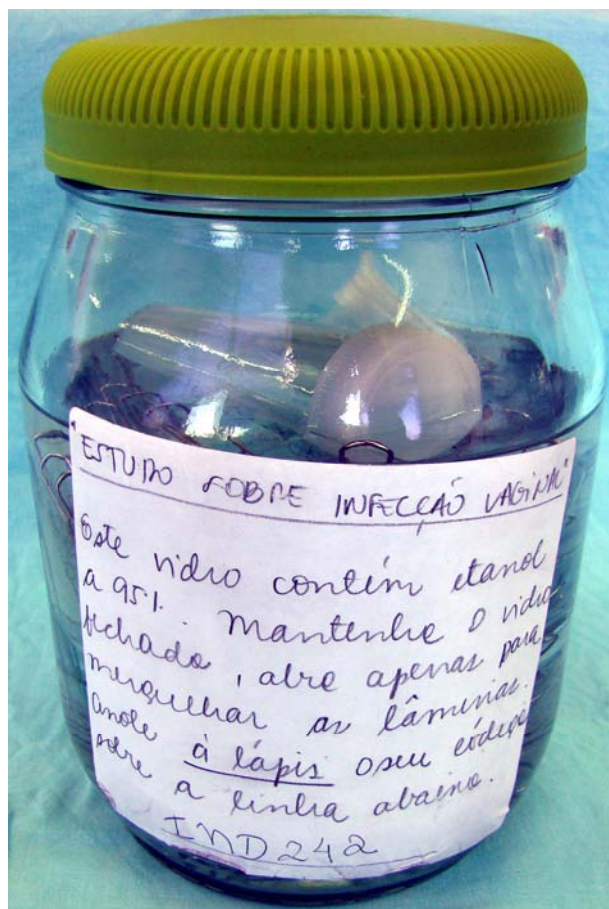 "ESTUDO SOBRE INFECÇÃO VAGINAL"
Este vidro contém etanol
a 95%. Mantenha o vidro
fechado, abra apenas para
mergulhar as lâminas.
Anote à lápis o seu código
sobre a linha abaixo.
IND242